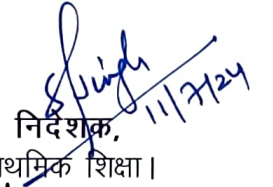 Singh
11/7/24
निदेशक,
शिक्षा।